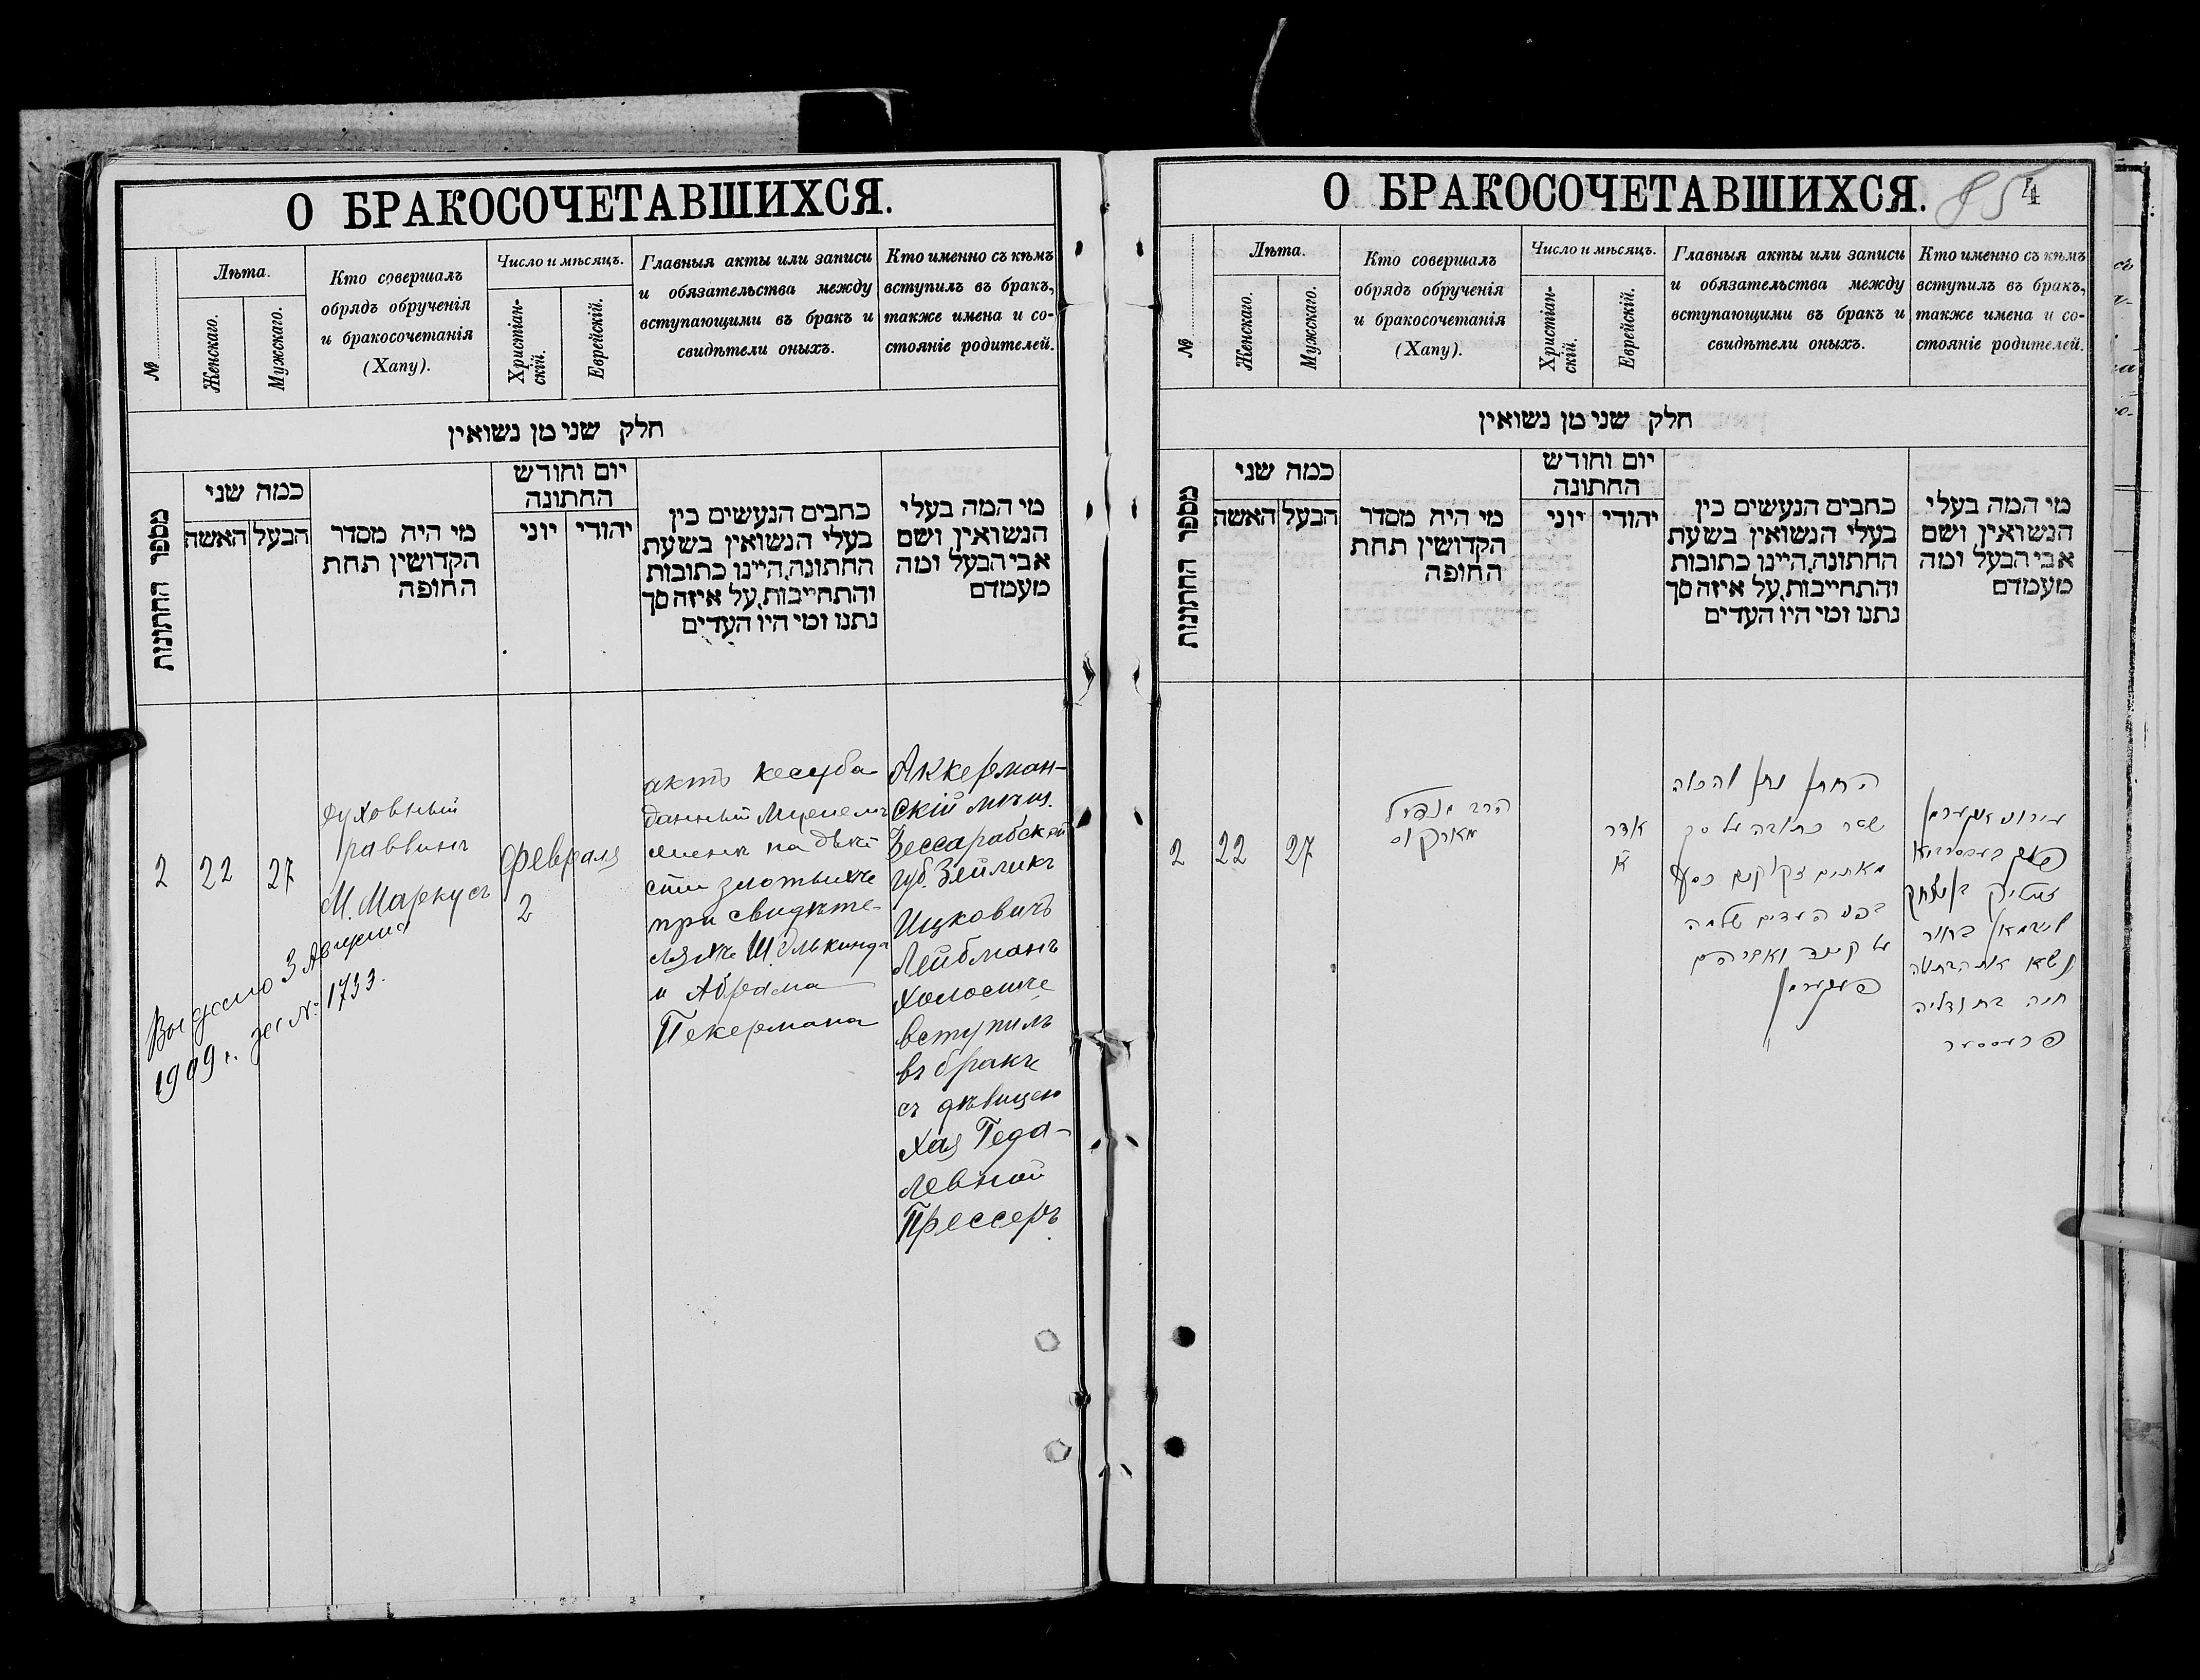 О БРАКОСОЧЕТАВШИХСЯ.
№
Лѣта.
Женскаго.
Мужскаго.
Кто совершалъ
обрядъ обрученія
и бракосочетанія
(Хапу).
Число и мѣсяцъ.
Христіан-
скій.
Еврейскій.
Главныя акты или записи
и обязательства между
вступающими въ бракъ и
свидѣтели оныхъ.
Кто именно съ кѣмъ
вступилъ въ бракъ,
также имена и со-
стояніе родителей.
חלק שני מן נשואין
מספר החתונות
כמה שני
האשה
הבעל
מי היה מסדר
הקדושין תחת
החופה
יום וחודש
החתונה
יוני
יהודי
כתבים הנעשים בין
בעלי הנשואין בשעת
החתונה, היינו כתובות
והתחייבות, על איזה סך
נתנו ומי היו העדים
מי המה בעלי
הנשואין ושם
אבי הבעל ומה
מעמדם
2
22
27
Духовный
раввинъ
М. Маркусъ
февраля
2
актъ кесуба
данный Мужемъ
женѣ на двѣ
сти злотыхъ
при свидѣте-
ляхъ Ш. Элькинда
и Абрама
Пекермана
Аккерман-
скій мѣщ.
Бессарабской
губ. Зейликъ
Ицковичъ
Лейбманъ
холостъ
вступилъ
въ бракъ
съ дѣвицею
Хая Геда-
левной
Прессеръ
Выдано 3 Августа
1909 г. за №: 1733.
О БРАКОСОЧЕТАВШИХСЯ.
85
4
№
Лѣта.
Женскаго.
Мужскаго.
Кто совершалъ
обрядъ обрученія
и бракосочетанія
(Хапу).
Число и мѣсяцъ.
Христіан-
скій.
Еврейскій.
Главныя акты или записи
и обязательства между
вступающими въ бракъ и
свидѣтели оныхъ.
Кто именно съ кѣмъ
вступилъ въ бракъ,
также имена и со-
стояніе родителей.
חלק שני מן נשואין
מספר החתונות
כמה שני
האשה
הבעל
מי היה מסדר
הקדושין תחת
החופה
יום וחודש
החתונה
יוני
יהודי
כתבים הנעשים בין
בעלי הנשואין בשעת
החתונה, היינו כתובות
והתחייבות, על איזה סך
נתנו ומי היו העדים
מי המה בעלי
הנשואין ושם
אבי הבעל ומה
מעמדם
2
22
27
הרב
מארקוס
אדר
א
החתן נתן להכלה
שטר כתובה על סך
מאתים זקוקים כסף
בפני העדים שלמה
עלקינד ואברהם
פעקערמאן
זעליק בן יצחק
ליבמאן בחור
נשא את הבתולה
חיה בת גדליה
פרעססער